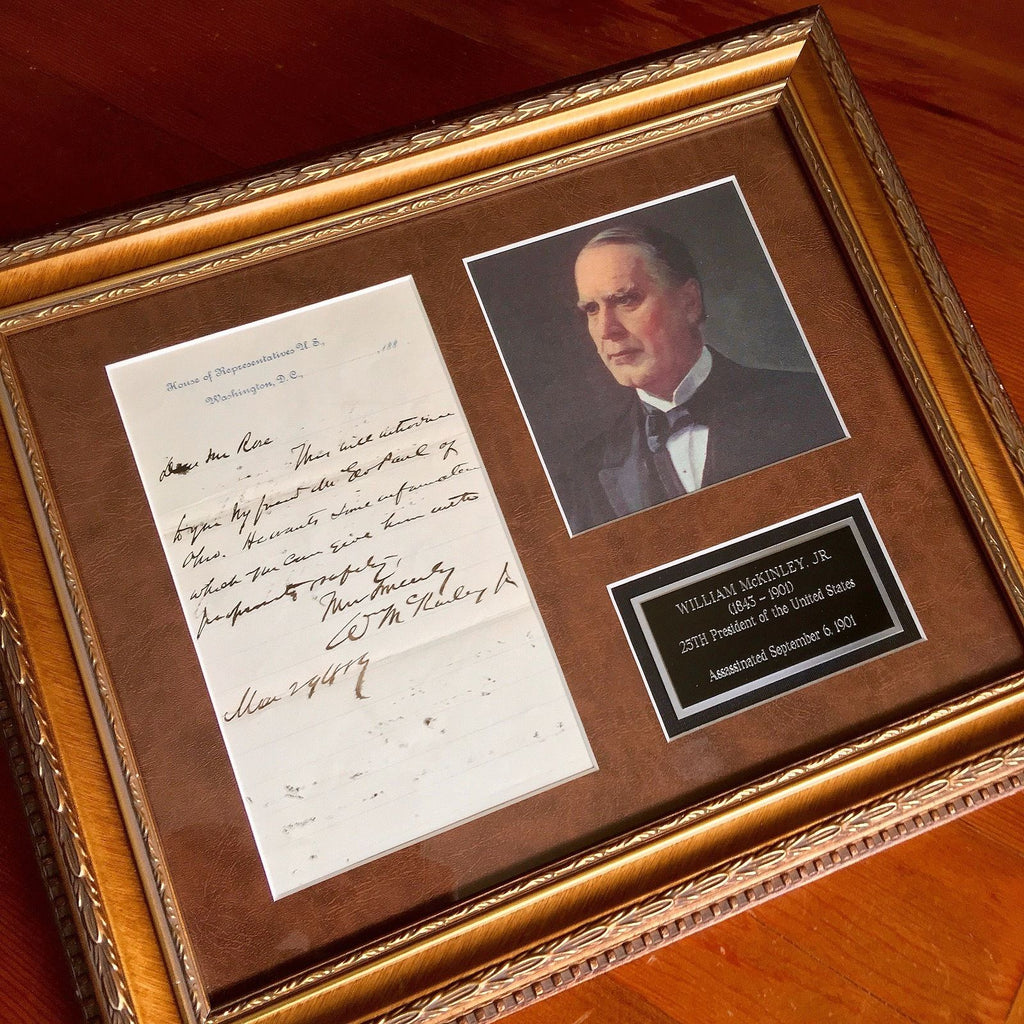 House of Representatives U.S.,
Washington, D.C., , 188
Dear Mr Rose
This will introduce
to you My friend Mr Geo Paul of
Ohio. He wants some information
which you can give him with
propriety & safety,
Yours Sincerely
W McKinley Jr
Mar 29
WILLIAM McKINLEY, JR
(1843 – 1901)
25TH President of the United States
Assassinated September 6, 1901